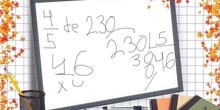 4/5 de 230
230 5
30 46
0
46
x 4